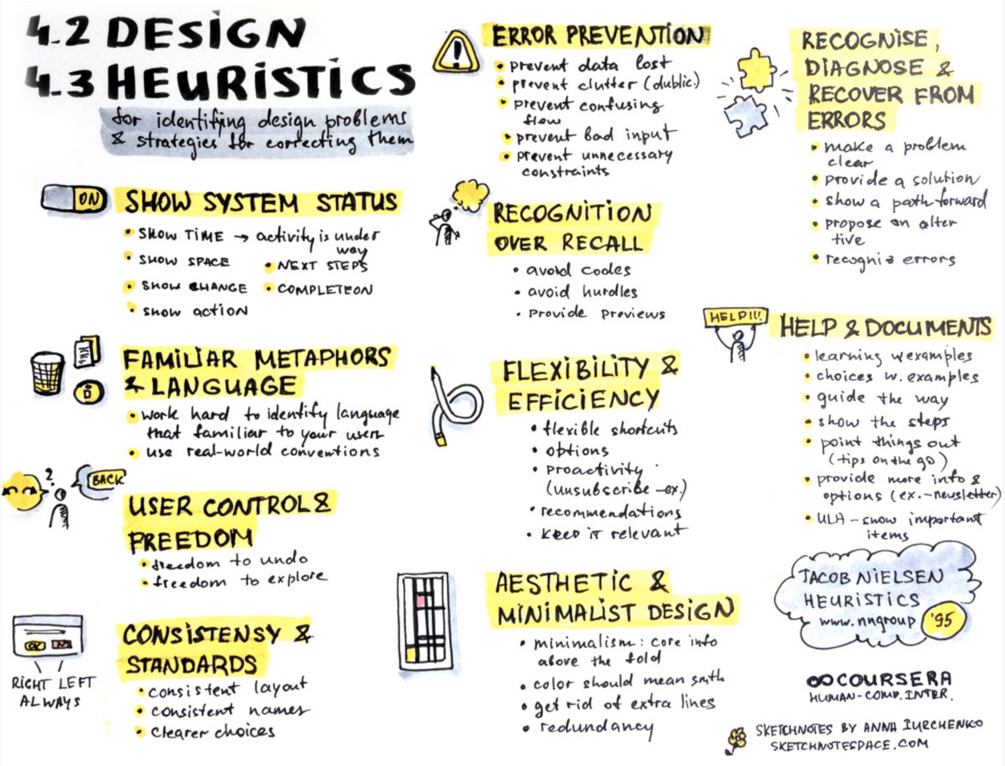 4.2 DESIGN
4.3 HEURISTICS
for identifying design problems
& strategies for correcting them
ON
SHOW SYSTEM STATUS
• SHOW TIME → activity is under
way
• SHOW SPACE
• NEXT STEPS
• SHOW CHANGE
• COMPLETEON
• show action
FAMILIAR METAPHORS
& LANGUAGE
• work hard to identify language
that familiar to your users
• use real-world conventions
?
BACK
USER CONTROL &
FREEDOM
• freedom to undo
• freedom to explore
RIGHT LEFT
ALWAYS
CONSISTENSY &
STANDARDS
• consistent layout
• consistent names
• clearer choices
!
ERROR PREVENTION
• prevent data lost
• prevent clutter (dublic.)
• prevent confusing
flow
• prevent bad input
• prevent unnecessary
constraints
RECOGNITION
OVER RECALL
• avoid codes
• avoid hurdles
• provide previews
FLEXIBILITY &
EFFICIENCY
• flexible shortcuts
• options
• proactivity
(unsubscribe -ex.)
• recommendations
• keep it relevant
AESTHETIC &
MINIMALIST DESIGN
• minimalism: core info
above the fold
• color should mean smth
• get rid of extra lines
• redundancy
RECOGNISE,
DIAGNOSE &
RECOVER FROM
ERRORS
• make a problem
clear
• provide a solution
• show a path forward
• propose an alter
tive
• recogniz errors
HELP!!!
HELP & DOCUMENTS
• learning w examples
• choices w. examples
• guide the way
• show the steps
• point things out
(tips on the go)
• provide more info &
options (ex.-newsletter)
• ULA - show important
items
JACOB NIELSEN
HEURISTICS
www.nngroup
'95
COURSERA
HUMAN-COMP. INTER.
SKETCHNOTES BY ANNA IURCHENKO
SKETCHNOTESPACE.COM